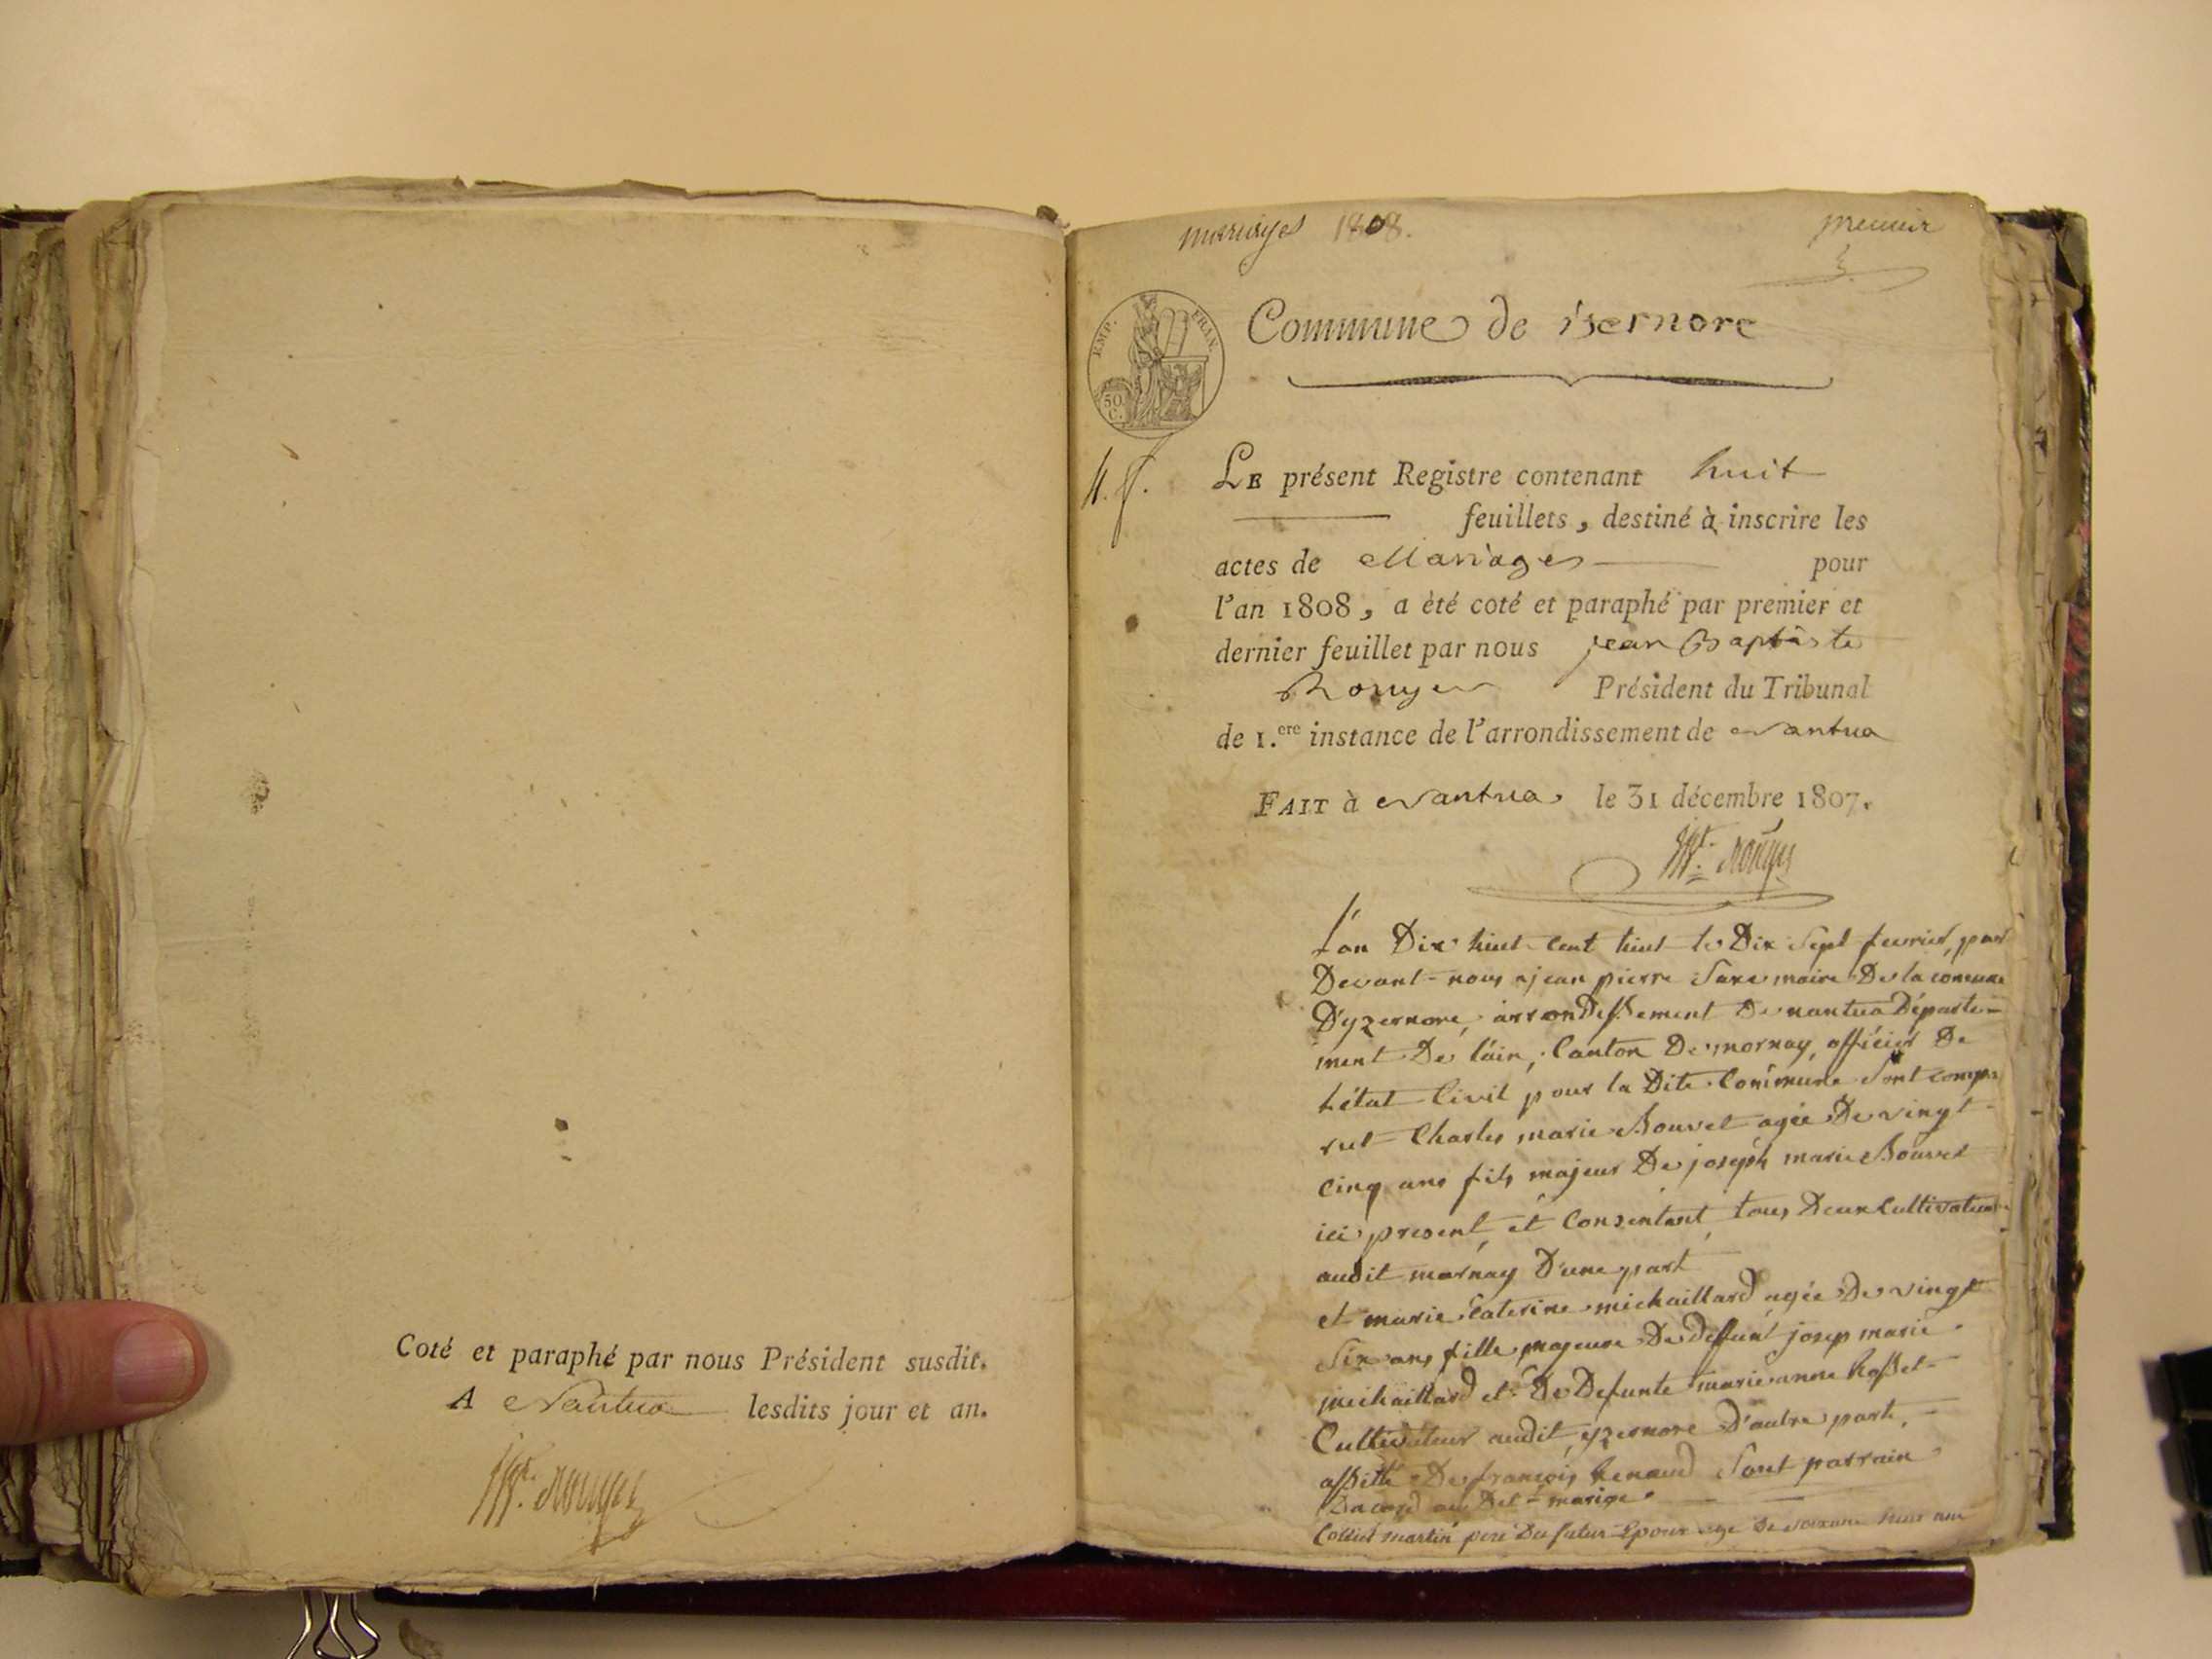 Coté et paraphé par nous Président susdit.
A Nantua lesdits jour et an.
mariages 1808.
premier
EMP. FRAN.
50
C.
Commune de isernore
LE présent Registre contenant huit
feuillets, destiné à inscrire les
actes de Mariages pour
l'an 1808, a èté coté et paraphé par premier et
dernier feuillet par nous jean Baptiste
Rouyer Président du Tribunal
de 1.ere instance de l'arrondissement de Nantua
FAIT à Nantua le 31 décembre 1807.
L'an Dix huit cent huit le Dix Sept fevrier, par
Devant nous jean pierre maire De la comune
D'yzernore, arrondissement De nantua Départe-
ment De l'ain, Canton De mornay, officier De
L'état Civil pour la Dite Commune Sont compa
rut Charles marie Bouvet agée De vingt
Cinq ans fils majeur De joseph marie Bouvet
ici present, et Consentant, tous Deux Cultivateur
audit mornay D'une part
et marie Caterine michaillard agée De vingt
Six ans fille majeure De Deffunt josep marie
michaillard et De Defunte marie anne
Cultivateur audit yzernore D'autre part,
assitté De françois Renaud Sont parrain
Dacord au Det marige
martin pere Du futur Epoux age De